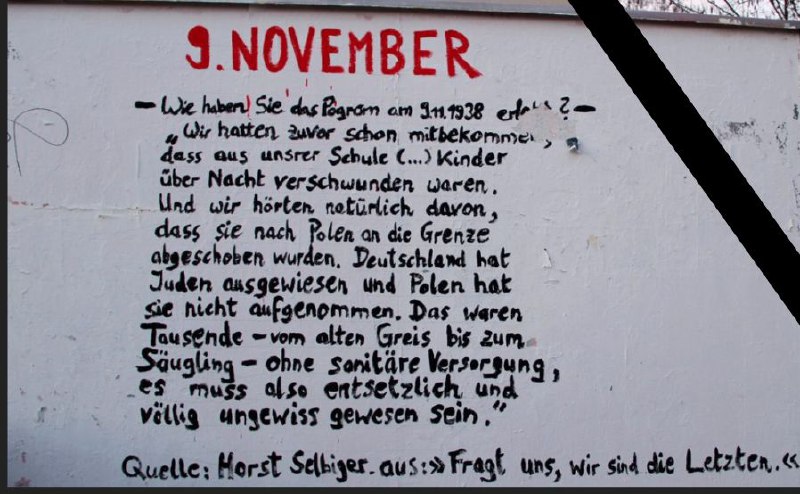 9. NOVEMBER
– Wie haben Sie das Pogrom am 9.11.1938 ? –
„Wir hatten zuvor schon mitbekommen,
dass aus unsrer Schule (...) Kinder
über Nacht verschwunden waren.
Und wir hörten natürlich davon,
dass sie nach Polen an die Grenze
abgeschoben wurden. Deutschland hat
Juden ausgewiesen und Polen hat
sie nicht aufgenommen. Das waren
Tausende – vom alten Greis bis zum
Säugling – ohne sanitäre Versorgung,
es muss also entsetzlich und
völlig ungewiss gewesen sein."
Quelle: Horst Selbiger. aus: »Fragt uns, wir sind die Letzten.«